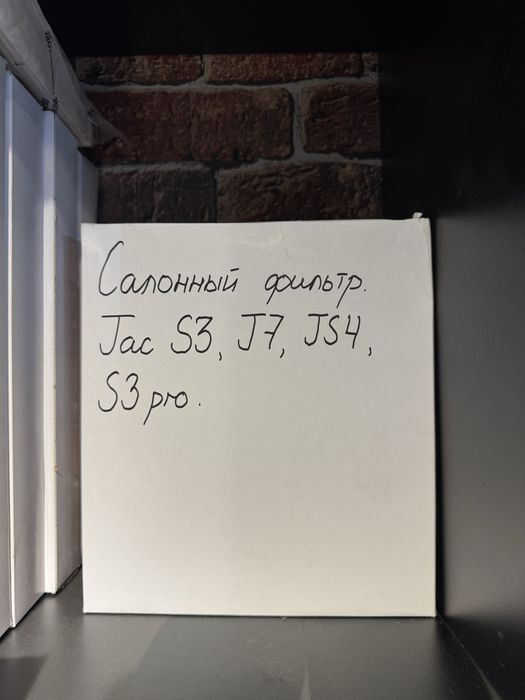 Салонный фильтр.
Jac S3, J7, JS4,
S3 pro.